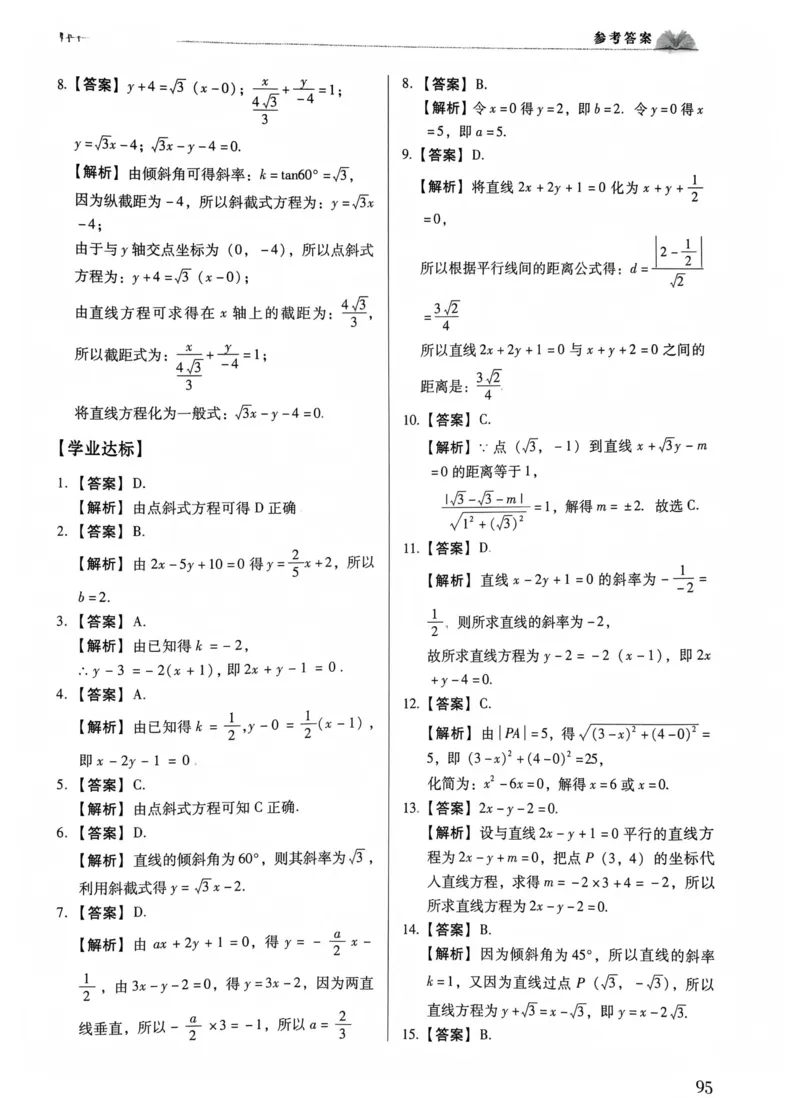 参考答案
8.【答案】y+4=√3（x-0）；x/(4√3/3)+y/(-4)=1；
y=√3x-4；√3x-y-4=0.
【解析】由倾斜角可得斜率：k=tan60°=√3，
因为纵截距为-4，所以斜截式方程为：y=√3x
-4；
由于与y轴交点坐标为（0，-4），所以点斜式
方程为：y+4=√3（x-0）；
由直线方程可求得在x轴上的截距为：4√3/3，
所以截距式为：x/(4√3/3)+y/(-4)=1；
将直线方程化为一般式：√3x-y-4=0.
【学业达标】
1.【答案】D.
【解析】由点斜式方程可得D正确
2.【答案】B.
【解析】由2x-5y+10=0得y=2/5x+2，所以
b=2.
3.【答案】A.
【解析】由已知得k=-2，
∴y-3=-2(x+1)，即2x+y-1=0.
4.【答案】A.
【解析】由已知得k=1/2,y-0=1/2(x-1)，
即x-2y-1=0.
5.【答案】C.
【解析】由点斜式方程可知C正确.
6.【答案】D.
【解析】直线的倾斜角为60°，则其斜率为√3，
利用斜截式得y=√3x-2.
7.【答案】D.
【解析】由ax+2y+1=0，得y=-a/2x-
1/2，由3x-y-2=0，得y=3x-2，因为两直
线垂直，所以-a/2×3=-1，所以a=2/3
8.【答案】B.
【解析】令x=0得y=2，即b=2. 令y=0得x
=5，即a=5.
9.【答案】D.
【解析】将直线2x+2y+1=0化为x+y+1/2
=0，
所以根据平行线间的距离公式得：d=|2-1/2|/√2
=3√2/4
所以直线2x+2y+1=0与x+y+2=0之间的
距离是：3√2/4.
10.【答案】C.
【解析】∵点（√3，-1）到直线x+√3y-m
=0的距离等于1，
|√3-√3-m|/√(1²+(√3)²)=1，解得m=±2. 故选C.
11.【答案】D.
【解析】直线x-2y+1=0的斜率为-1/(-2)=
1/2，则所求直线的斜率为-2，
故所求直线方程为y-2=-2（x-1），即2x
+y-4=0.
12.【答案】C.
【解析】由|PA|=5，得√((3-x)²+(4-0)²)=
5，即（3-x）²+(4-0)²=25，
化简为：x²-6x=0，解得x=6或x=0.
13.【答案】2x-y-2=0.
【解析】设与直线2x-y+1=0平行的直线方
程为2x-y+m=0，把点P（3，4）的坐标代
入直线方程，求得m=-2×3+4=-2，所以
所求直线方程为2x-y-2=0.
14.【答案】B.
【解析】因为倾斜角为45°，所以直线的斜率
k=1，又因为直线过点P（√3，-√3），所以
直线方程为y+√3=x-√3，即y=x-2√3.
15.【答案】B.
95